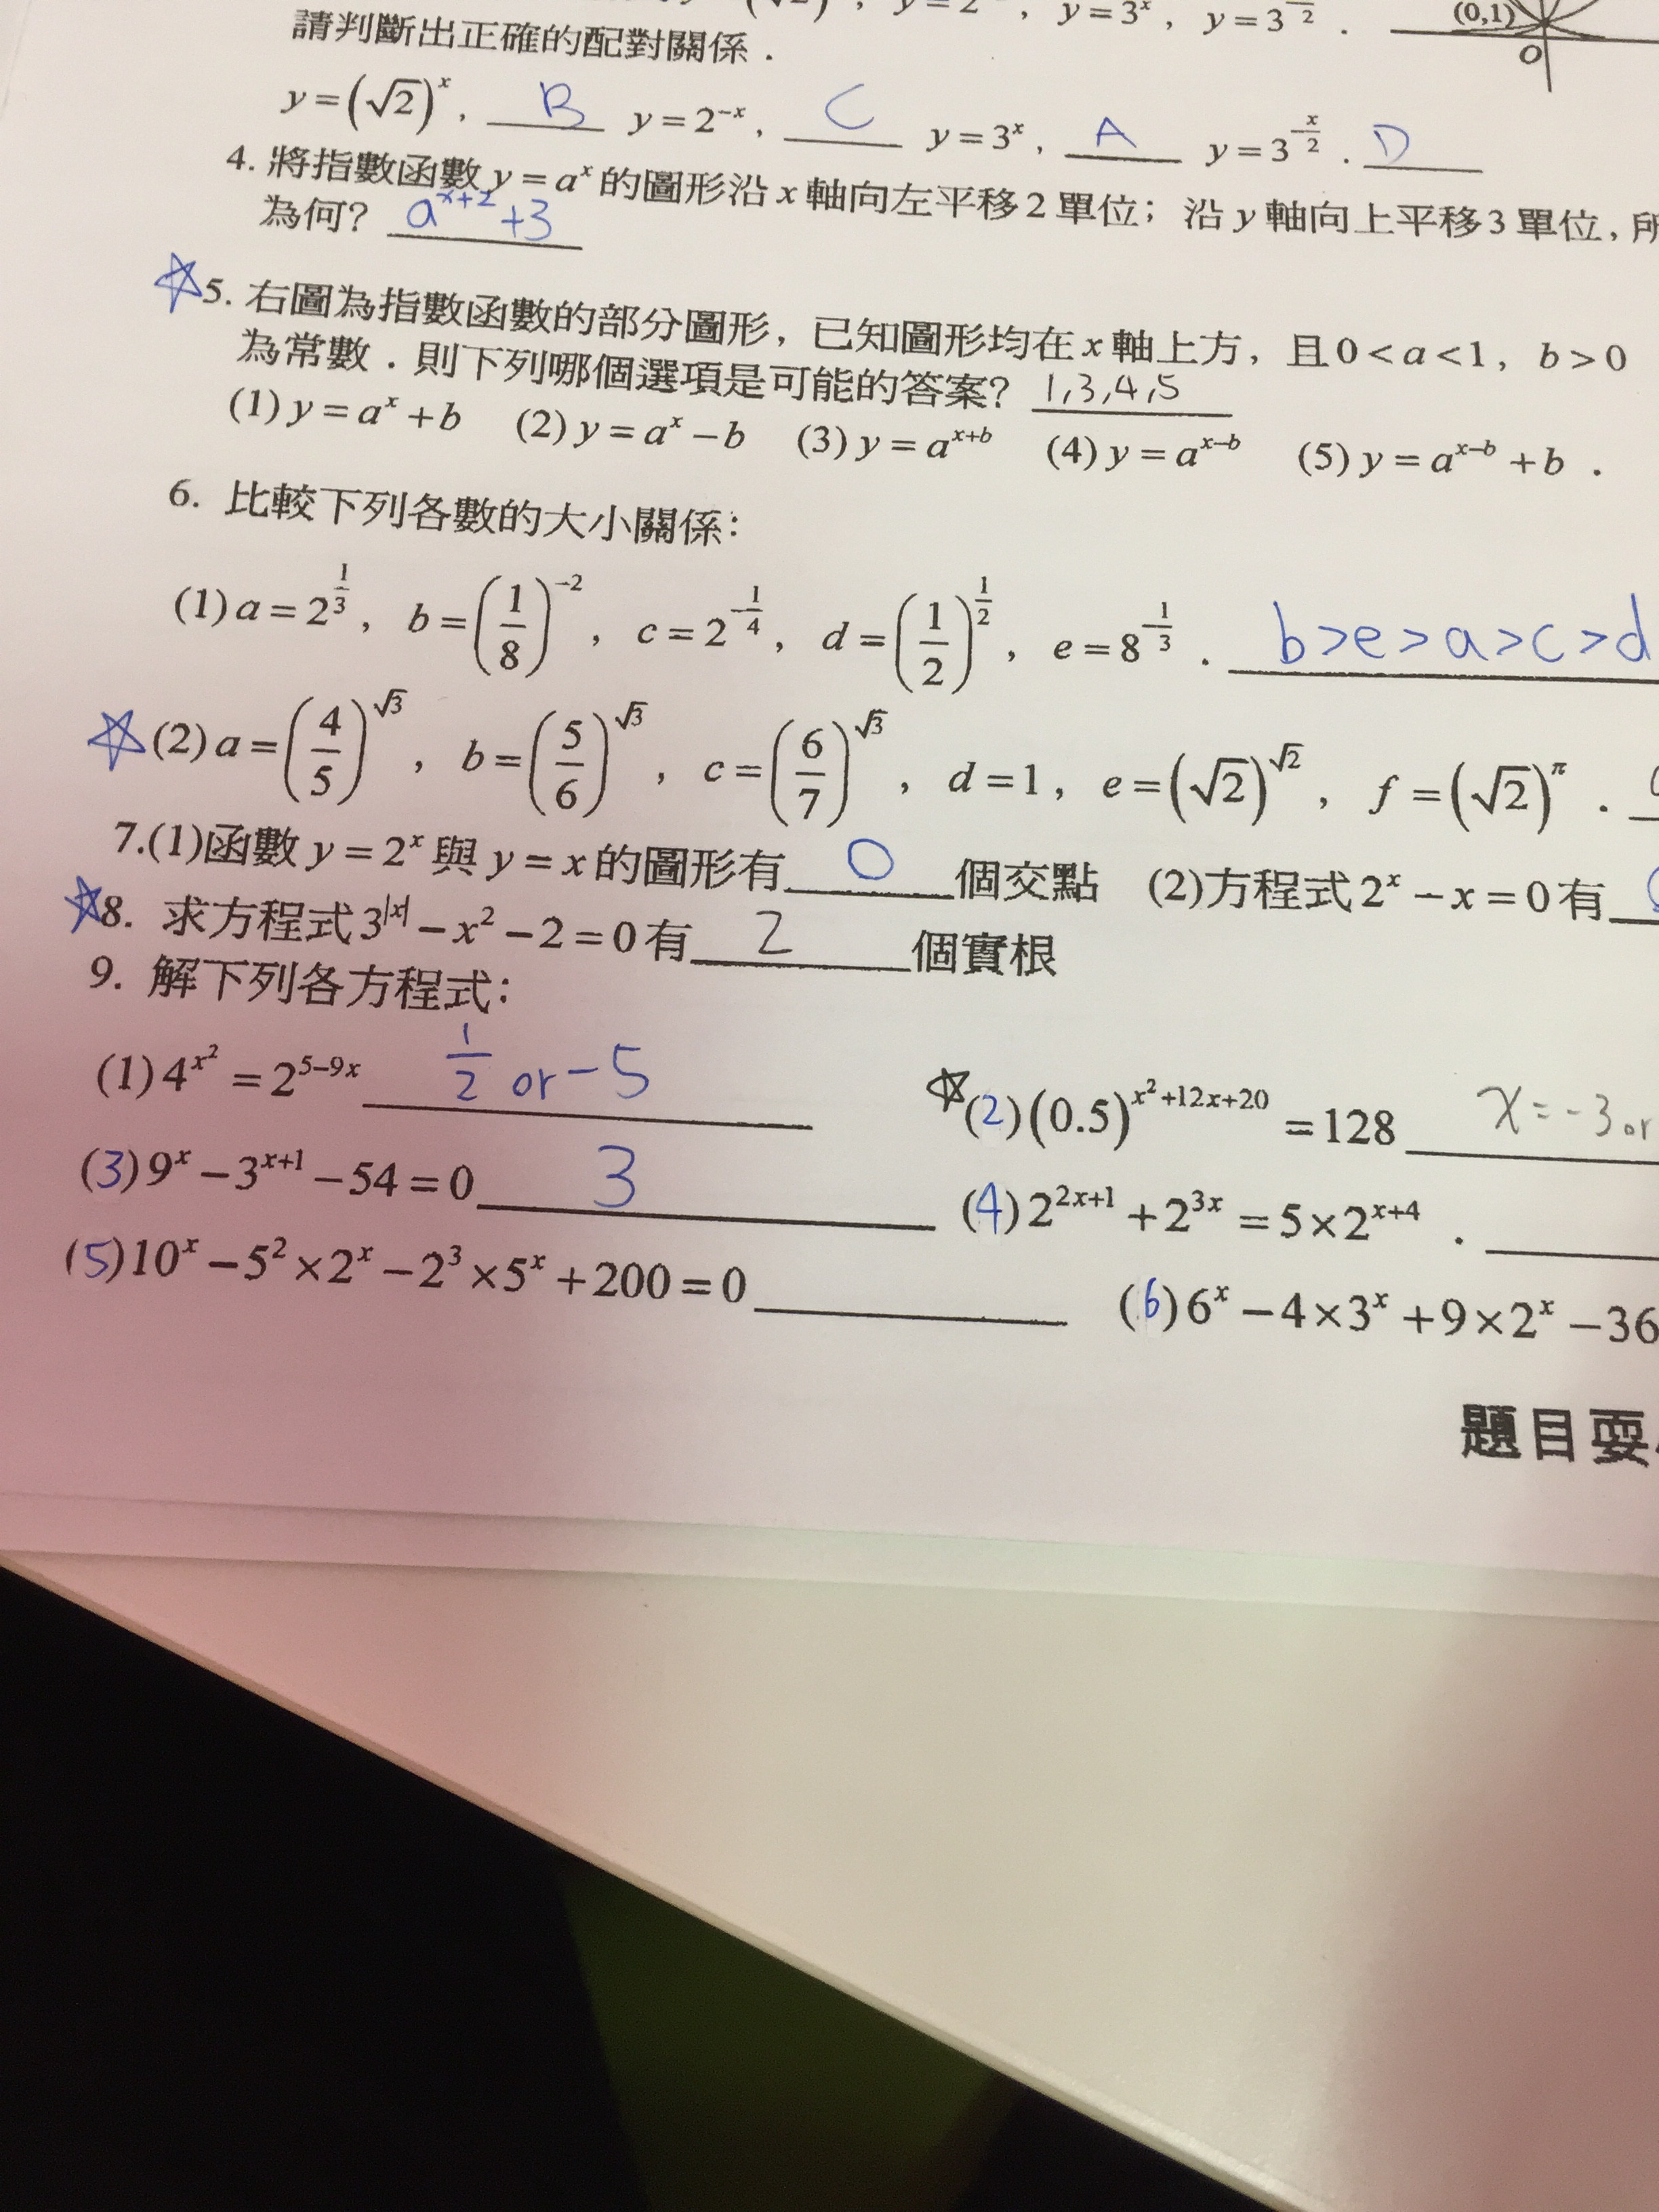 y=3^x, y=3^{-\frac{x}{2}}. (0,1)
請判斷出正確的配對關係. O
y=(√2)^x, B y=2^{-x}, C y=3^x, A y=3^{-\frac{x}{2}}. D
4. 將指數函數 y=a^x 的圖形沿 x 軸向左平移 2 單位; 沿 y 軸向上平移 3 單位, 所
為何? a^{x+2}+3
☆5. 右圖為指數函數的部分圖形, 已知圖形均在 x 軸上方, 且 0<a<1, b>0
為常數. 則下列哪個選項是可能的答案? 1,3,4,5
(1) y=a^x+b (2) y=a^x-b (3) y=a^{x+b} (4) y=a^{x-b} (5) y=a^{x-b}+b .
6. 比較下列各數的大小關係:
(1) a=2^{\frac{1}{3}}, b=(\frac{1}{8})^{-2}, c=2^{-\frac{1}{4}}, d=(\frac{1}{2})^{\frac{1}{2}}, e=8^{-\frac{1}{3}} . b>e>a>c>d
☆(2) a=(\frac{4}{5})^{√3}, b=(\frac{5}{6})^{√3}, c=(\frac{6}{7})^{√3}, d=1, e=(√2)^{√2}, f=(√2)^π .
7.(1)函數 y=2^x 與 y=x 的圖形有 0 個交點 (2)方程式 2^x-x=0 有
☆8. 求方程式 3^{|x|}-x^2-2=0 有 2 個實根
9. 解下列各方程式:
(1) 4^{x^2}=2^{5-9x} \frac{1}{2} or -5 ☆(2) (0.5)^{x^2+12x+20}=128 x=-3 or
(3) 9^x-3^{x+1}-54=0 3 (4) 2^{2x+1}+2^{3x}=5×2^{x+4} .
(5) 10^x-5^2×2^x-2^3×5^x+200=0 (6) 6^x-4×3^x+9×2^x-36
題目要